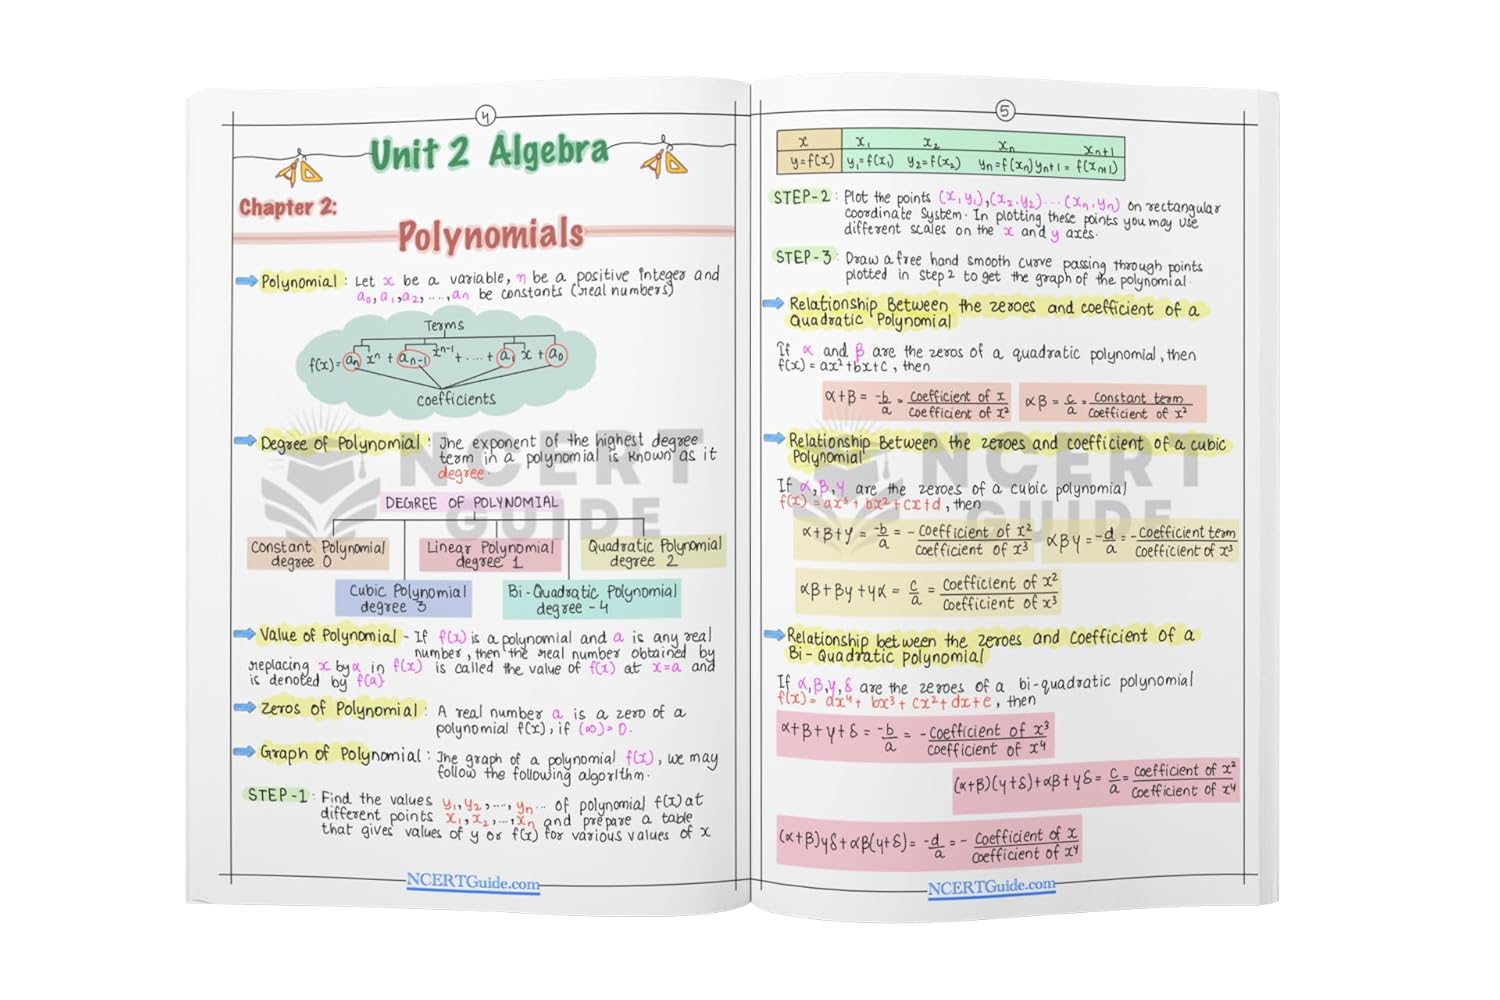 4
Unit 2 Algebra
Chapter 2:
Polynomials
Polynomial : Let x be a variable, n be a positive integer and
a₀, a₁, a₂, ...., aₙ be constants (real numbers)
Terms
f(x) = aₙ xⁿ + aₙ₋₁ xⁿ⁻¹ + .... + a₁ x + a₀
coefficients
Degree of Polynomial : The exponent of the highest degree
term in a polynomial is known as it
degree.
DEGREE OF POLYNOMIAL
Constant Polynomial
degree 0
Linear Polynomial
degree 1
Quadratic Polynomial
degree 2
Cubic Polynomial
degree 3
Bi-Quadratic Polynomial
degree - 4
Value of Polynomial - If f(x) is a polynomial and a is any real
number, then the real number obtained by
replacing x by α in f(x) is called the value of f(x) at x=a and
is denoted by f(a)
Zeros of Polynomial : A real number a is a zero of a
polynomial f(x), if (∞) = 0.
Graph of Polynomial : The graph of a polynomial f(x), we may
follow the following algorithm.
STEP-1 : Find the values y₁, y₂, ...., yₙ... of polynomial f(x) at
different points x₁, x₂, ..., xₙ and prepare a table
that gives values of y or f(x) for various values of x
NCERTGuide.com
NCERT
GUIDE
5
x x₁ x₂ xₙ xₙ+1
y=f(x) y₁=f(x₁) y₂=f(x₂) yₙ=f(xₙ) yₙ+1 = f(xₙ+1)
STEP-2 : Plot the points (x,y₁),(x₂.y₂)...(xₙ,yₙ) on rectangular
coordinate system. In plotting these points you may use
different scales on the x and y axes.
STEP-3 : Draw a free hand smooth curve passing through points
plotted in step 2 to get the graph of the polynomial.
Relationship Between the zeroes and coefficient of a
Quadratic Polynomial
If α and β are the zeros of a quadratic polynomial, then
f(x) = ax²+bx+c, then
α+β = -b/a = coefficient of x/coefficient of x²
αβ = c/a = constant term/coefficient of x²
Relationship Between the zeroes and coefficient of a cubic
Polynomial
If α,β,γ are the zeroes of a cubic polynomial
f(x) = ax³ + bx² + cx+d, then
α+β+γ = -b/a = - coefficient of x²/coefficient of x³
αβγ = -d/a = - coefficient term/coefficient of x³
αβ+βγ+γα = c/a = coefficient of x²/coefficient of x³
Relationship between the zeroes and coefficient of a
Bi-Quadratic polynomial
If α,β,γ,δ are the zeroes of a bi-quadratic polynomial
f(x) = dx⁴+ bx³+ cx²+dx+e, then
α+β+γ+δ = -b/a = - coefficient of x³/coefficient of x⁴
(α+β)(γ+δ)+αβ+γδ = c/a = coefficient of x²/coefficient of x⁴
(α+β)γδ+αβ(γ+δ) = -d/a = - coefficient of x/coefficient of x⁴
NCERTGuide.com
NCERT
GUIDE